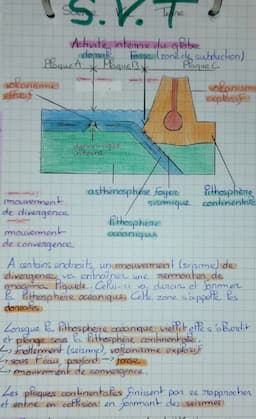 S.V.T
Activité interne du globe
dorsale Fosse (zone de subduction)
Plaque A Plaque B Plaque C
volcanisme volcanisme
effusif explosif
asthénosphère foyer lithosphère
sismique continentale
mouvement
de divergence lithosphère
océanique
mouvement
de convergence
A certains endroits, un mouvement (séisme) de
divergence va entraîner une remontée de
magma liquide. Celui-ci va durcir et former
la lithosphère océanique. Cette zone s'appelle les
dorsales
Lorsque la lithosphère océanique vieillit elle s'alourdit
et plonge sous la lithosphère continentale.
↳ frottement (séisme), volcanisme explosif
↳ sous l'eau profond fosse
↳ mouvement de convergence.
Les plaques continentales finissent par se rapprocher
et entre en collision en formant des séismes